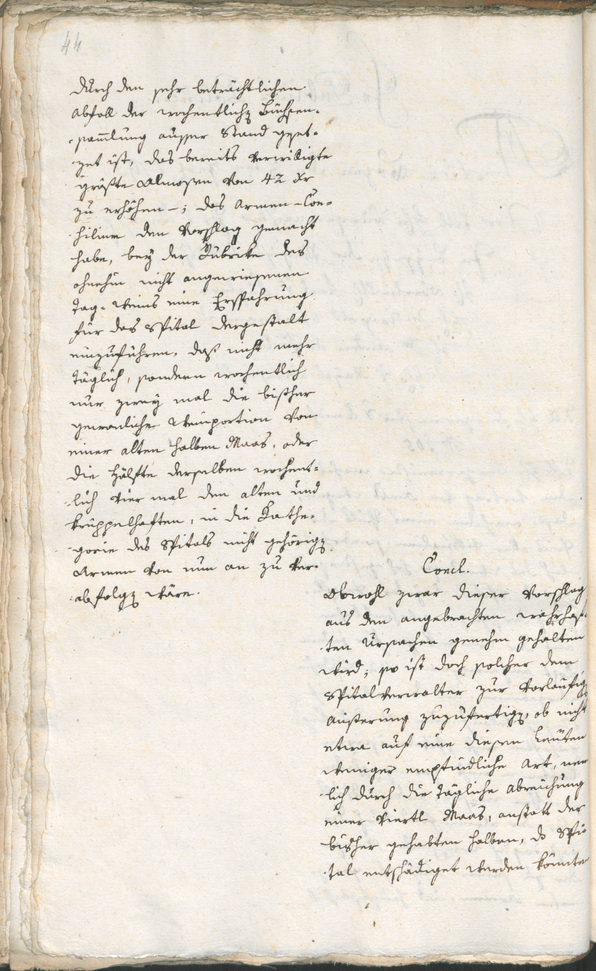 44
durch den sehr beträchtlichen
Abfall der wochentlichen Büchsen-
samlung ausser Stand geset-
zet ist, das bereits verwilligte
größte Almosen von 42 Xr
zu erhöhen –; das Armen-Con-
silium den Vorschlag gemacht
habe, bey der Rubricke des
ohnehin nicht angewiesenen
Tag-Weins eine Ersparung
für das Spital dergestalt
einzuführen, daß nicht mehr
täglich, sondern wochentlich
nur zwey mal die bisher
gewonliche Weinportion von
einer alten halben Maas, oder
die Hälfte derselben wochent-
lich vier mal den alten und
krüppelhaften, in die Kathe-
gorie des Spitals nicht gehörigen
Armen von nun an zu ver-
abfolgen wäre.
Concl.
Obwohl zwar dieser Vorschlag
aus den angebrachten wahrhaf-
ten Ursachen genehm gehalten
wird; so ist doch solcher dem
Spitalverwalter zur vorläufigen
Äußerung zuzufertigen, ob nicht
etwa auf eine diesen Leuten
weniger empfindliche Art, nem
lich durch die tägliche Abreichung
einer Viertl Maas, anstatt der
bisher gehabten halben, das Spi
tal entschädiget werden könnte